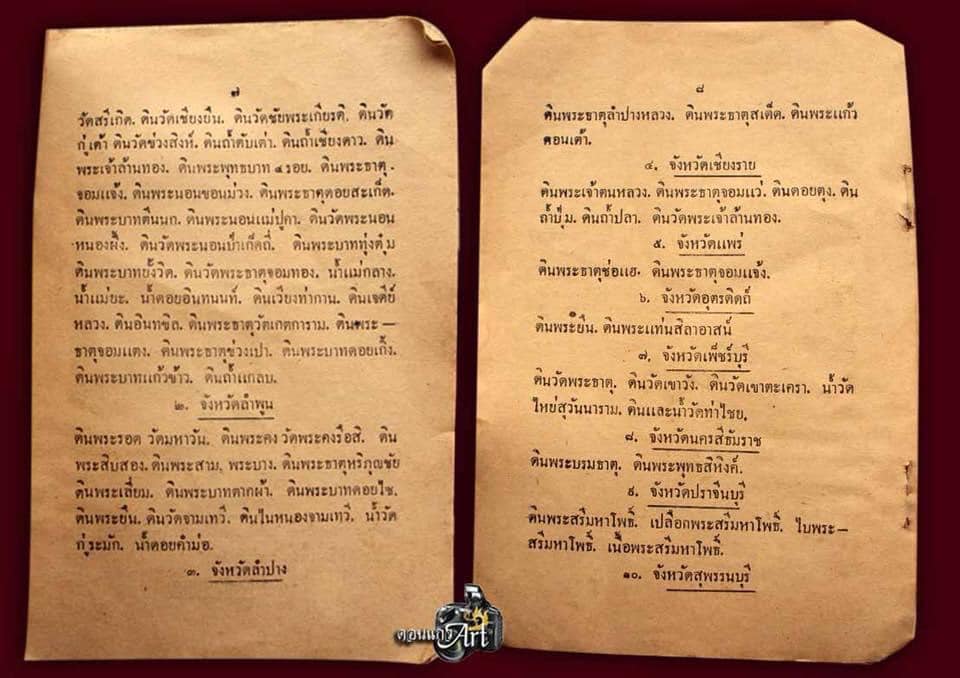 ๗
วัดสรีเกิด. ดินวัดเชียงยืน. ดินวัดชัยพระเกียรติ. ดินวัด
กู่เต้า ดินวัดช่วงสิงห์. ดินถ้ำตับเต่า. ดินถ้ำเชียงดาว. ดิน
พระเจ้าล้านทอง. ดินพระพุทธบาท ๔ รอย. ดินพระธาตุ.
จอมแจ้ง. ดินพระนอนขอนม่วง. ดินพระธาตุดอยสะเก็ด.
ดินพระบาทตีนนก. ดินพระนอนแม่ปูคา. ดินวัดพระนอน
หนองผึ้ง. ดินวัดพระนอนป่าเก็ดถี่. ดินพระบาททุ่งตุ๋ม
ดินพระบาทยั้งวิด. ดินวัดพระธาตุจอมทอง. น้ำแม่กลาง.
น้ำแม่ยะ. น้ำดอยอินทนนท์. ดินเวียงท่ากาน. ดินเจดีย์
หลวง. ดินอินทขิล. ดินพระธาตุวัดเกตการาม. ดินพระ—
ธาตุจอมแตง. ดินพระธาตุช่วงเปา. ดินพระบาทดอยเกิ้ง.
ดินพระบาทแก้วข้าว. ดินถ้ำแกลบ.
๒. จังหวัดลำพูน
ดินพระรอด วัดมหาวัน. ดินพระคง วัดพระคงรือสี. ดิน
พระสิบสอง. ดินพระสาม, พระบาง. ดินพระธาตุหริภุญชัย
ดินพระเลี่ยม. ดินพระบาทตากผ้า. ดินพระบาทดอยไซ.
ดินพระยืน. ดินวัดจามเทวี. ดินในหนองจามเทวี. น้ำวัด
กู่ระมัก. น้ำดอยคำม่อ.
๓. จังหวัดลำปาง
๘
ดินพระธาตุลำปางหลวง. ดินพระธาตุสเด็ด. ดินพระแก้ว
ดอนเต้า.
๔. จังหวัดเชียงราย
ดินพระเจ้าตนหลวง. ดินพระธาตุจอมแว่. ดินดอยตุง. ดิน
ถ้ำปุ่ม. ดินถ้ำปลา. ดินวัดพระเจ้าล้านทอง.
๕. จังหวัดแพร่
ดินพระธาตุช่อแฮ. ดินพระธาตุจอมแจ้ง.
๖. จังหวัดอุตรดิตถ์
ดินพระยืน. ดินพระแท่นสิลาอาสน์
๗. จังหวัดเพ็ชร์บุรี
ดินวัดพระธาตุ. ดินวัดเขาวัง. ดินวัดเขาตะเครา. น้ำวัด
ใหย่สุวันนาราม. ดินและน้ำวัดท่าไชย.
๘. จังหวัดนครสีธัมราช
ดินพระบรมธาตุ. ดินพระพุทธสิหิงค์.
๙. จังหวัดปราจีนบุรี
ดินพระสรีมหาโพธิ์. เปลือกพระสรีมหาโพธิ์. ใบพระ—
สรีมหาโพธิ์. เนื้อพระสรีมหาโพธิ์.
๑๐. จังหวัดสุพรรนบุรี
ดอนแก้ว Art